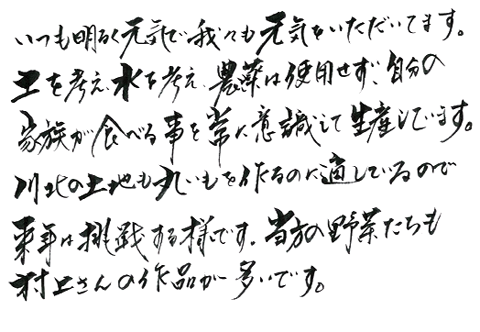 いつも明るく元気で我々も元気をいただいてます。
土を考え水を考え農薬は使用せず、自分の
家族が食べる事を常に意識して生産しています。
川北の土地も丸いもを作るのに適しているので
来年は挑戦する様です。当方の野菜たちも
村上さんの作品が多いです。